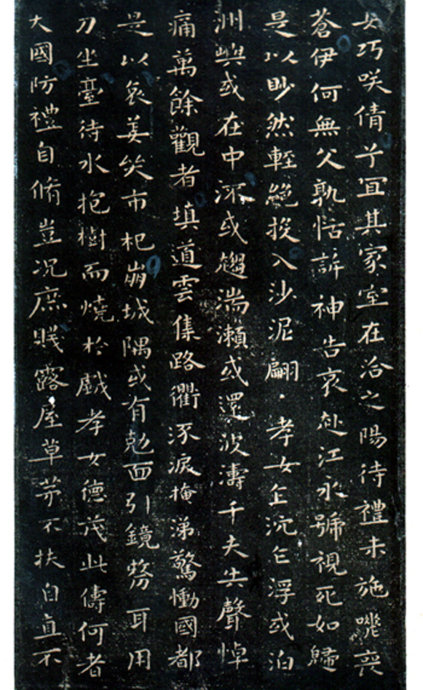 女巧咲倩兮宜其家室在洽之陽待禮未施嗟喪
蒼伊何無父孰怙訴神告哀赴江永號視死如歸
是以眇然輕絕投入沙泥翩〻孝女乍沉乍浮或泊
洲嶼或在中流或趨湍瀨或還波濤千夫失聲悼
痛萬餘觀者填道雲集路衢流淚掩涕驚慟國都
是以哀姜哭市杞崩城隅或有剋面引鏡剺耳用
刀坐臺待水抱樹而燒於戲孝女德茂此儔何者
大國防禮自脩豈況庶賤露屋草茅不扶自直不